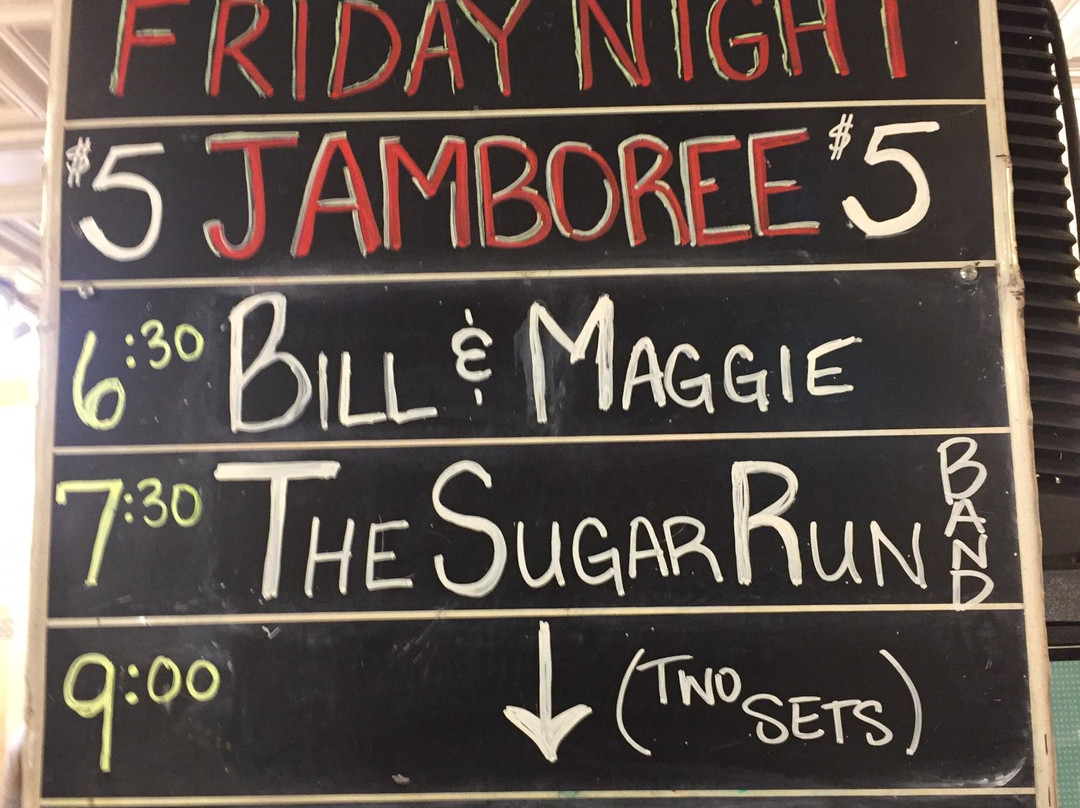 FRIDAY NIGHT
$5 JAMBOREE $5
6:30 BILL & MAGGIE
7:30 THE SUGAR RUN BAND
9:00 ↓ (TWO SETS)